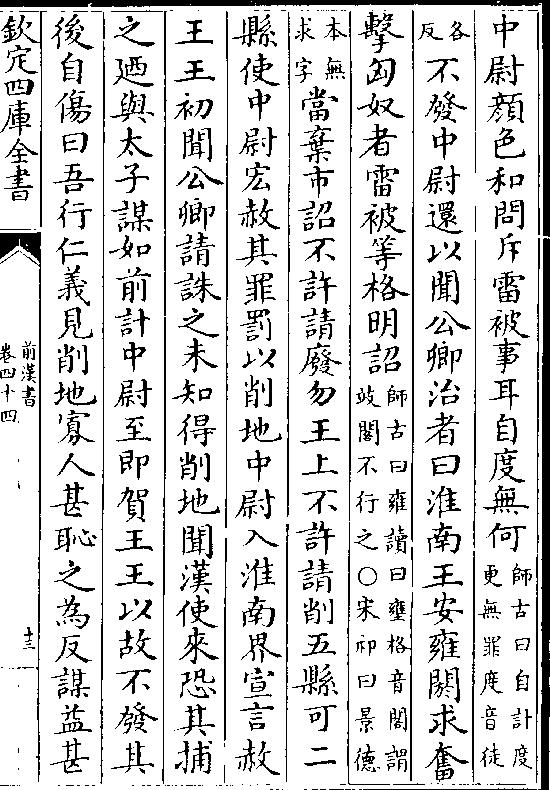 中尉顔色和問斥雷被事耳自度無何師古曰自計度更無罪度音徒
各反不發中尉還以聞公卿治者曰淮南王安雍閼求奮
擊匈奴者雷被等格明詔師古曰雍讀曰壅格音閣謂歧閣不行之○宋祁曰景德
本無求字當棄市詔不許請廢勿王上不許請削五縣可二
縣使中尉宏赦其罪罰以削地中尉入淮南界宣言赦
王王初聞公卿請誅之未知得削地聞漢使來恐其捕
之廼與太子謀如前計中尉至即賀王王以故不發其
後自傷曰吾行仁義見削地寡人甚恥之為反謀益甚
欽定四庫全書
前漢書
卷四十四
十三